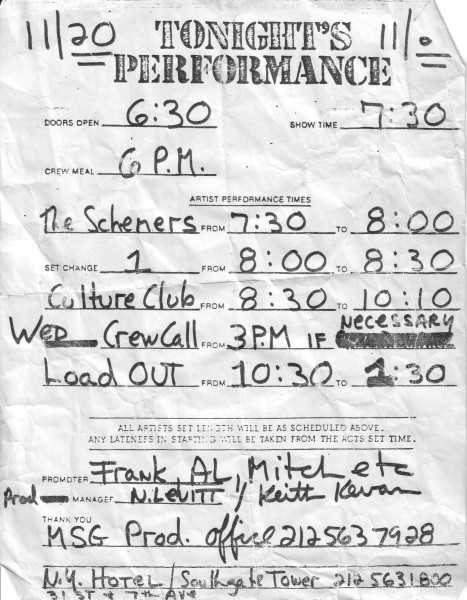 11/20 TONIGHT'S 11/
PERFORMANCE
DOORS OPEN 6:30 SHOW TIME 7:30
CREW MEAL 6 P.M.
ARTIST PERFORMANCE TIMES
The Schemers FROM 7:30 TO 8:00
SET CHANGE 1 FROM 8:00 TO 8:30
Culture Club FROM 8:30 TO 10:10
WED CrewCall FROM 3PM IF NECESSARY
Load OUT FROM 10:30 TO 1:30
ALL ARTISTS SET LENGTH WILL BE AS SCHEDULED ABOVE.
ANY LATENESS IN STARTING WILL BE TAKEN FROM THE ACTS SET TIME.
PROMOTER Frank, AL, Mitch etc
Prod MANAGER N. LEVITT / Keith Kevan
THANK YOU
MSG Prod. office 212 563 7928
N.Y. HOTEL / Southgate Tower 212 563 1800
31 ST & 7th Ave